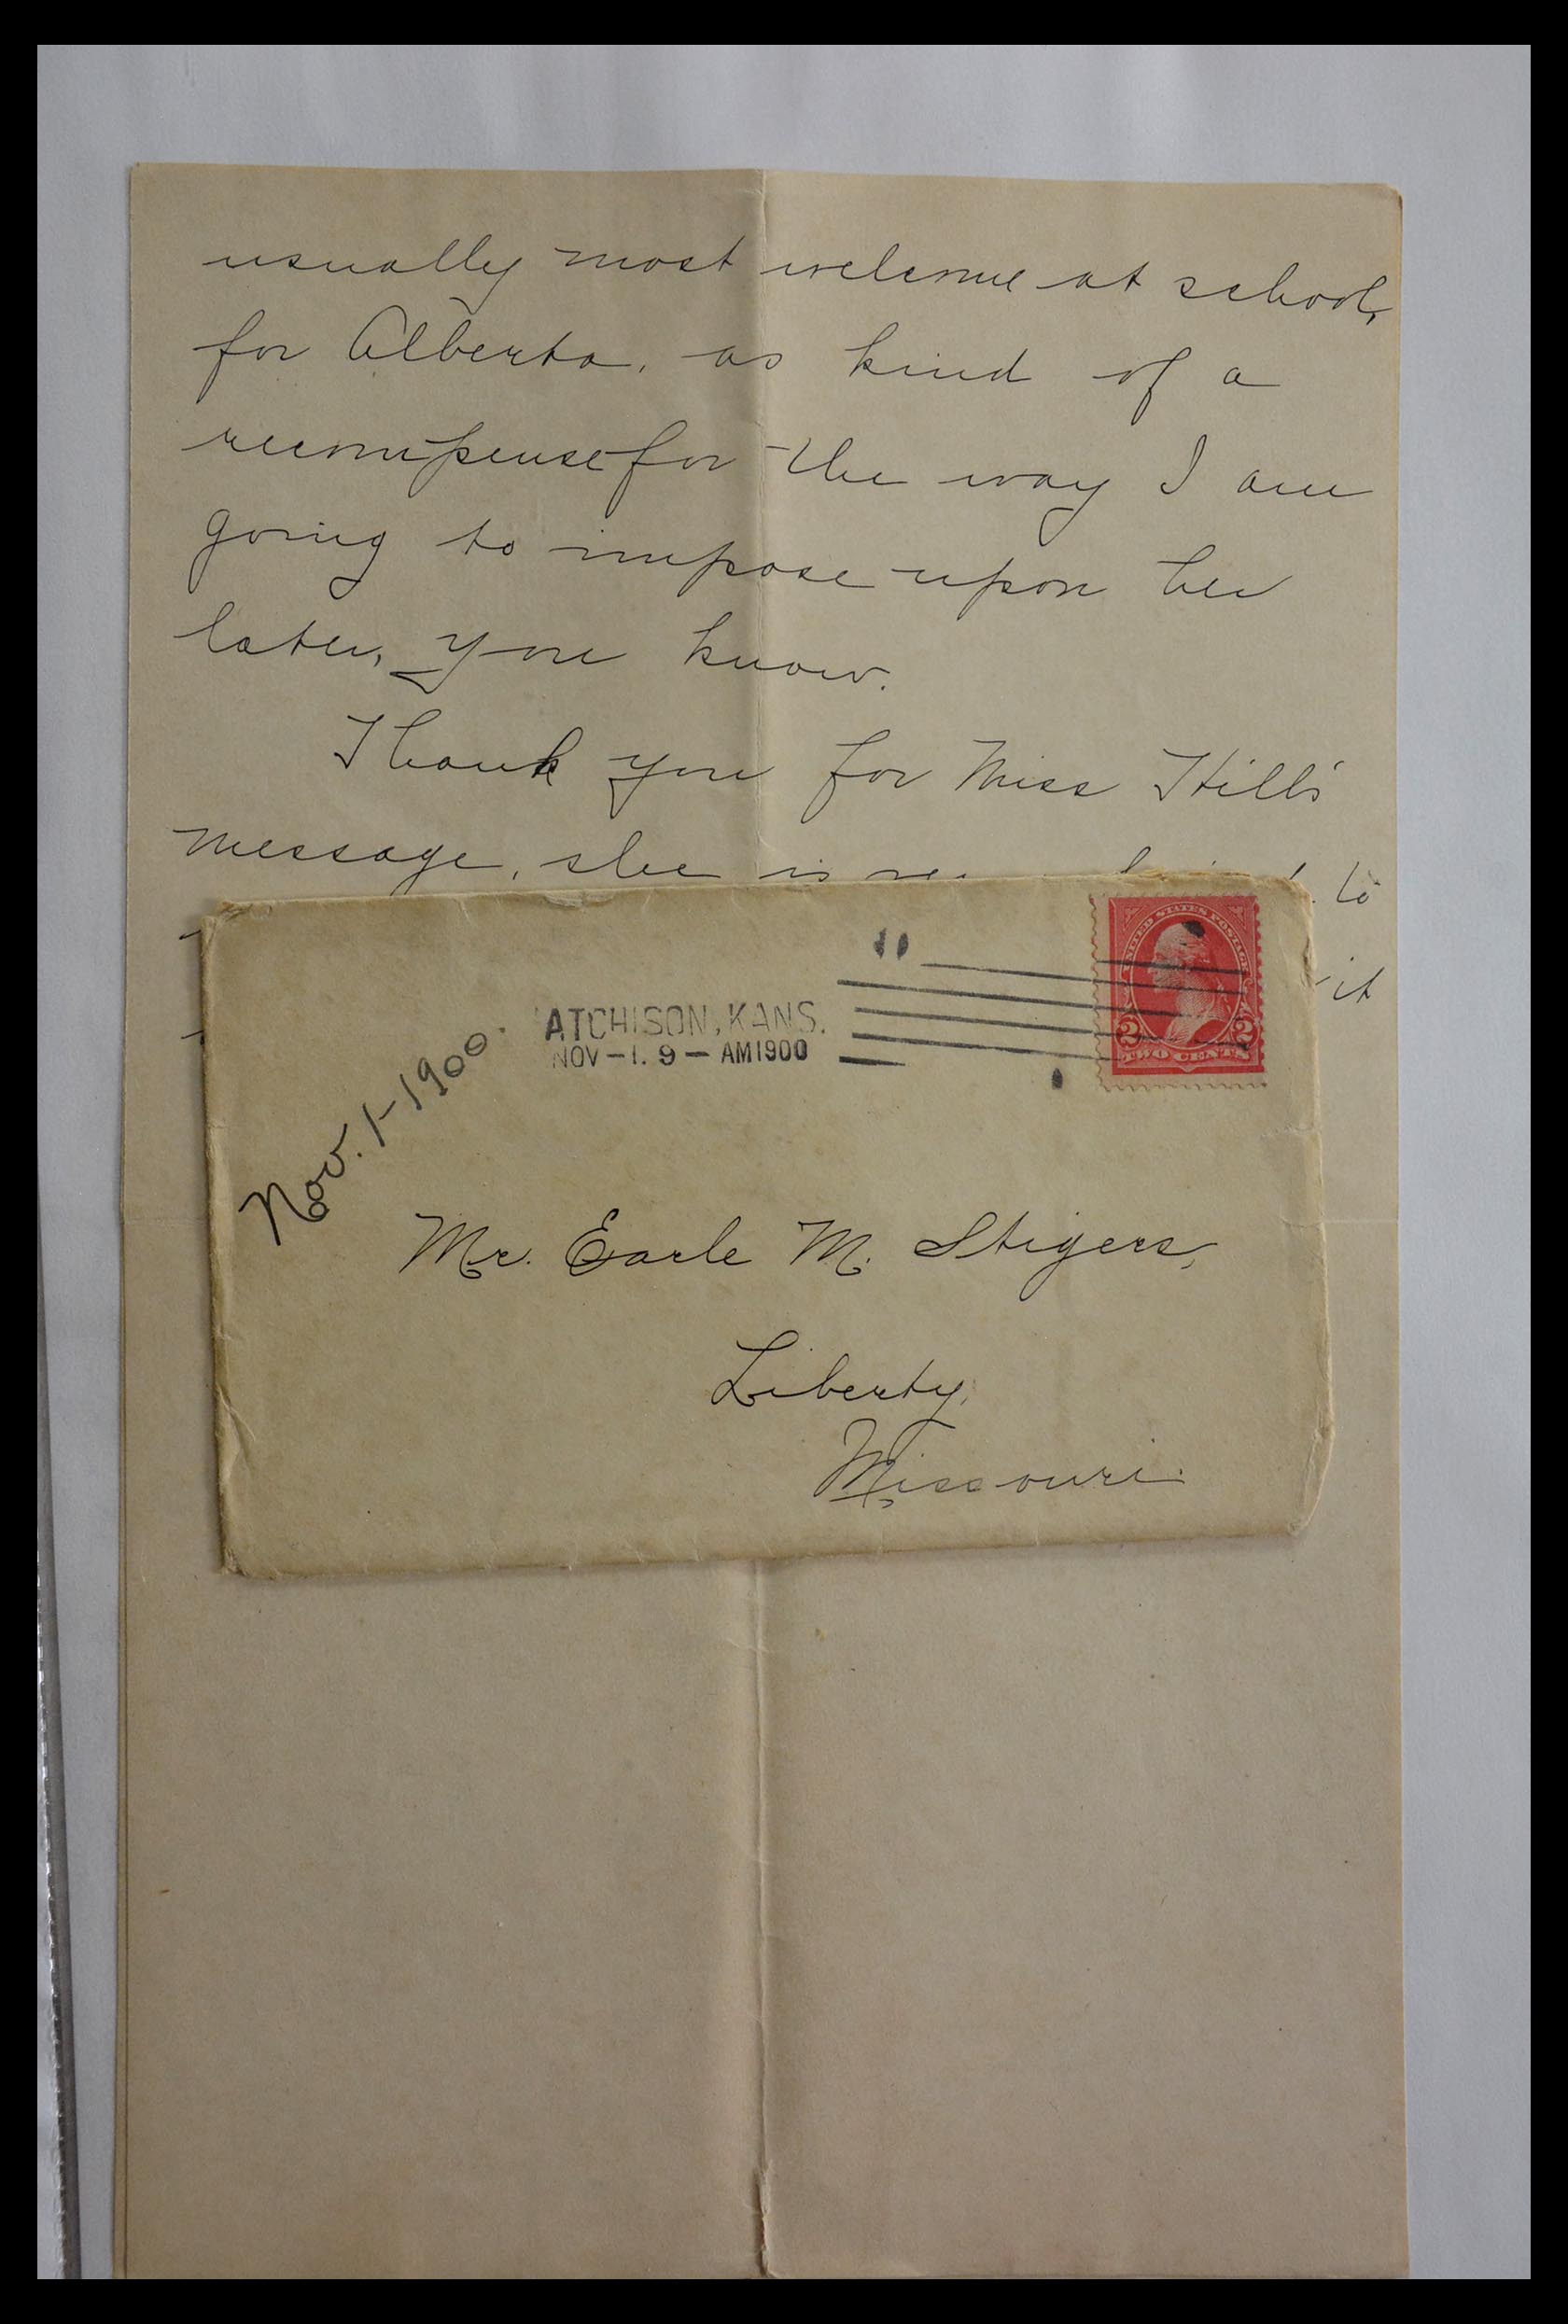 usually most welcome at school,
for Alberta, as kind of a
recompense for the way I am
going to impose upon her
later, you know.
Thank you for Miss Hill's
message, she is to
it
ATCHISON, KANS.
NOV-1. 9-AM 1900
UNITED STATES POSTAGE
2 2
TWO CENTS
Nov. 1-1900.
Mr. Earle M. Stigers,
Liberty,
Missouri.